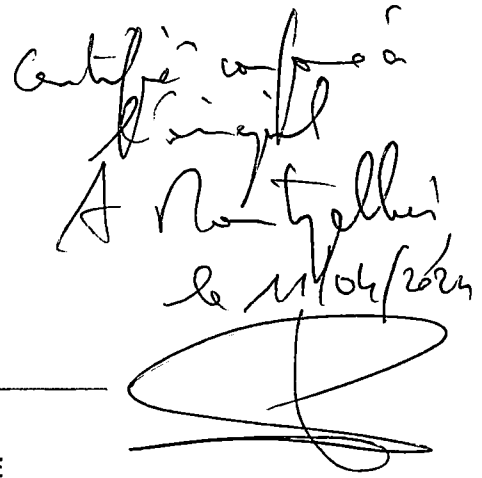 Certifié conforme à
l'original
A Montpellier
le 11/04/2024
E